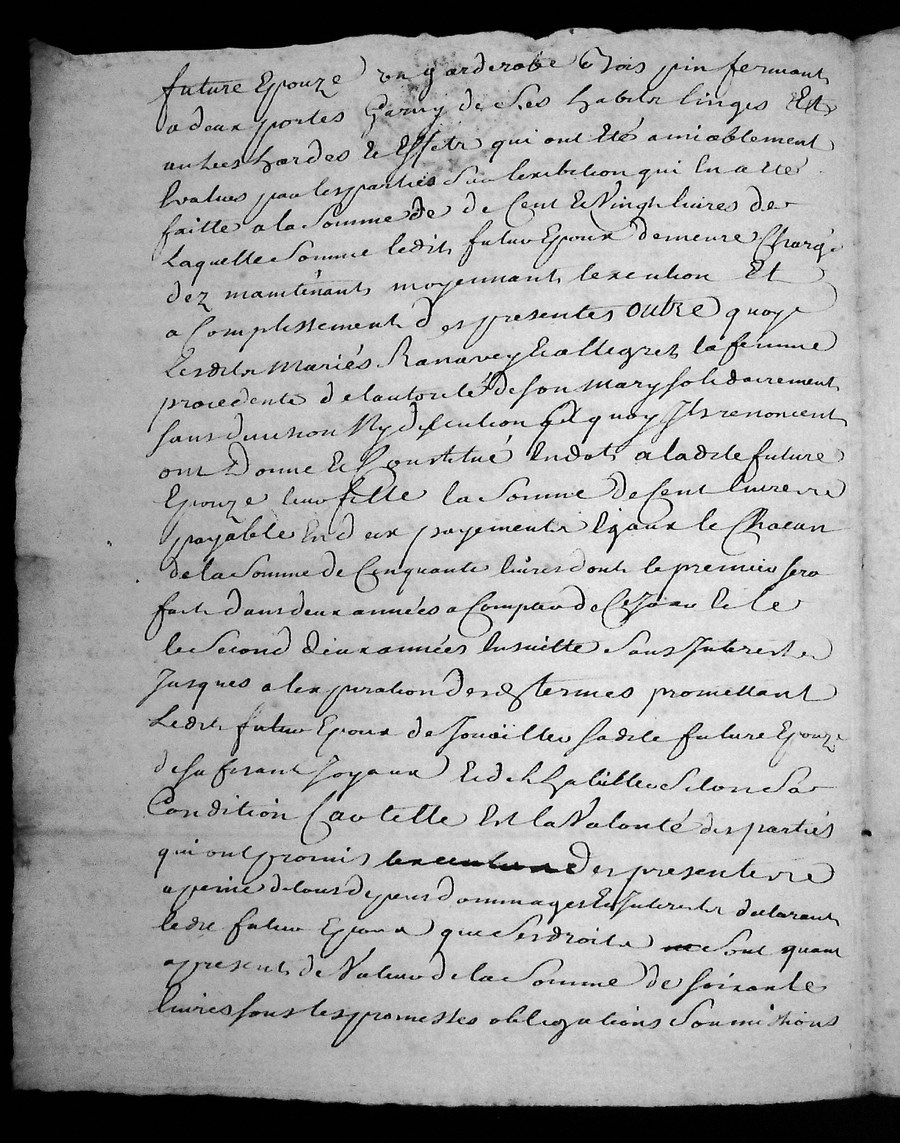 future Epouze un garderobe bois pin fermant
a deux portes garny de ses habits linges Et
autres hardes Et Effets qui ont Eté amiablement
Evalués par les parties sur lexibition qui En a Eté
faitte a la somme de de Cent Et Vingt livres de
Laquelle somme ledit futur Epoux demeure Chargé
dez maintenant moyennant lexecution Et
acomplissement des presentes outre quoy
Lesdits mariés Ranavey Et allegret la femme
procedente de lautorité de son mary solidairement
sans division Ny discution a quoy Ils renoncent
ont Donné Et Constitué En dot a ladite future
Epouze leur fille la somme de Cent livres
payable En deux payements Egaux le Chacun
de la somme de Cinquante livres dont le premier sera
fait dans deux années a Compter de Ce Jour Et le
le second deux années Ensuitte sans Interest
Jusques a lexpiration desds termes promettant
Ledit futur Epoux de Jouailler sadite future Epouze
de suffisant Joyaux Et de lhabiller selon sa
Condition Car telle Est la Volonté des parties
qui ont promis des presentes
a peine de tous depens dommages Et Interests declarant
ledit futur Epoux que ses droits sont quant
a present de Valeur de la somme de soixante
livres sous les promesses obligations soumissions